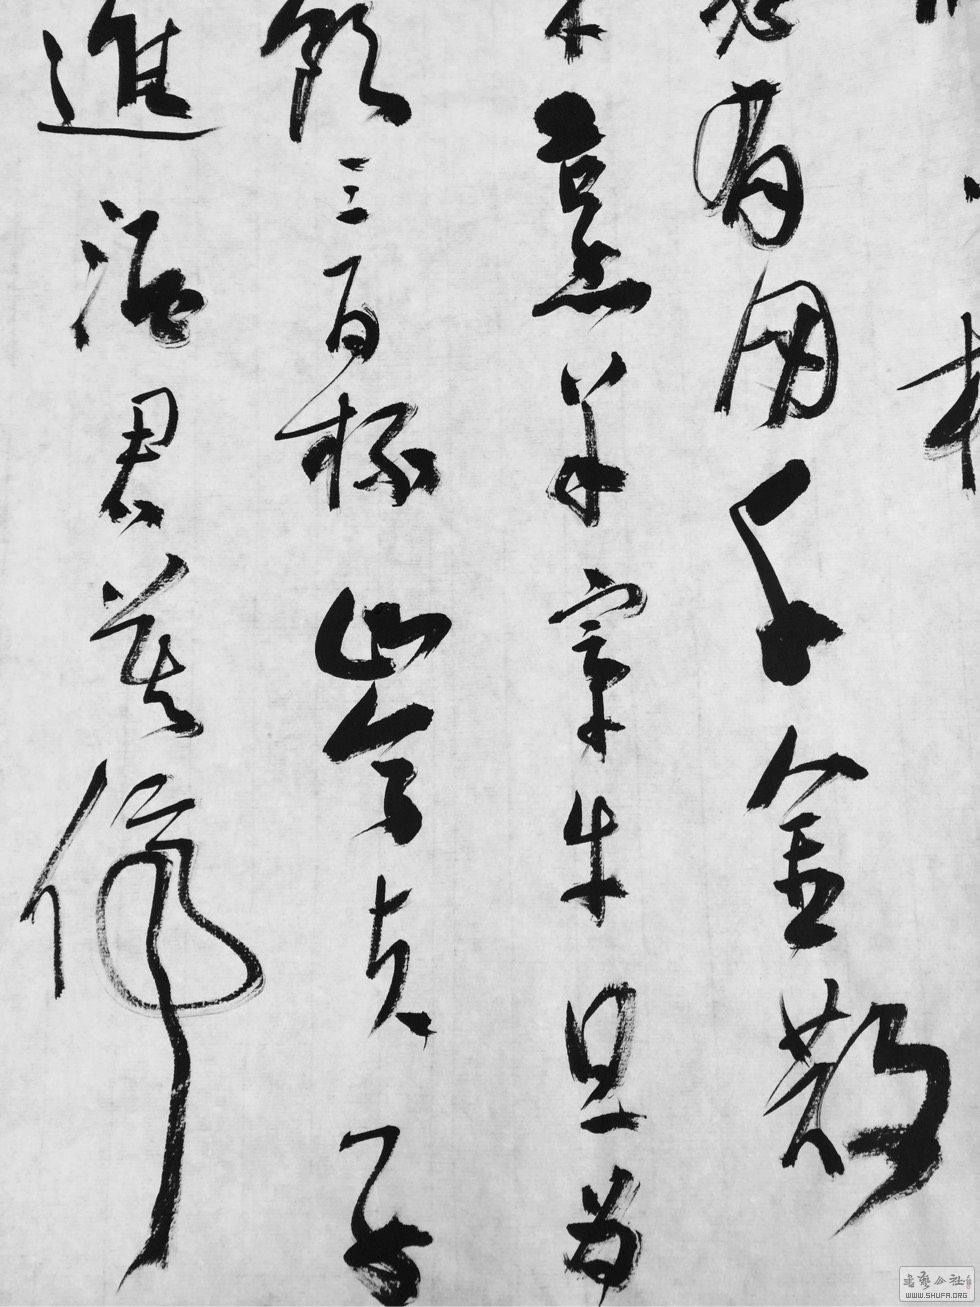 必有用千金散
烹羊宰牛且為
飲三百杯岑夫子
進酒君莫停
書藝公社
WWW.SHUFA.ORG